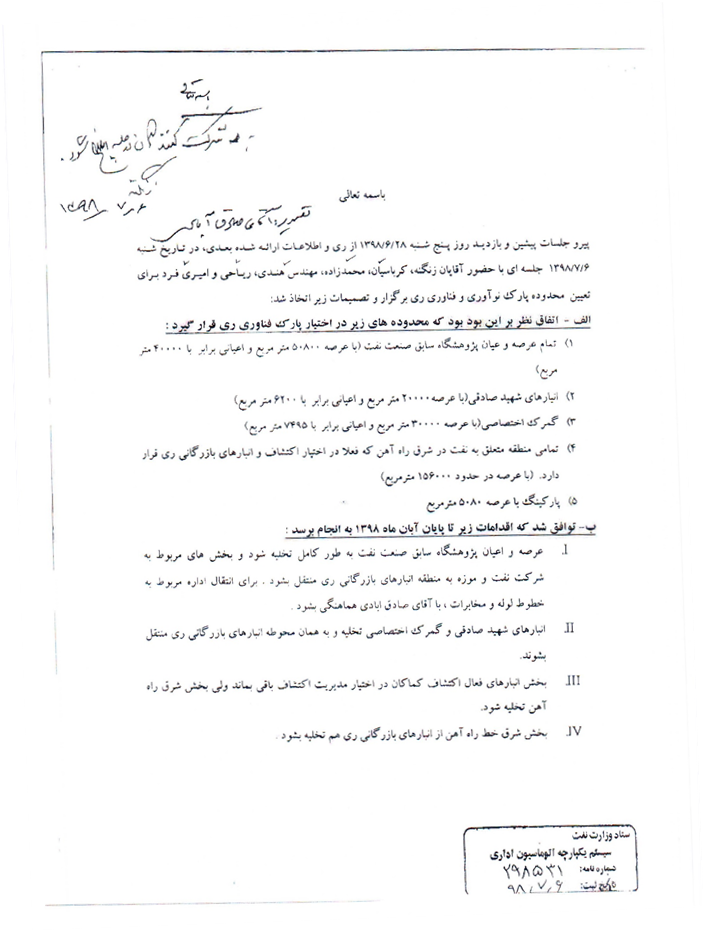 بسمه تعالی
به همه شرکت کنندگان در جلسه ابلاغ شود.
زنگنه
۱۳۹۸/۷/۶
باسمه تعالی
پیرو جلسات پیشین و بازدید روز پنج شنبه ۱۳۹۸/۶/۲۸ از ری و اطلاعات ارائه شده بعدی، در تاریخ شنبه
۱۳۹۸/۷/۶ جلسه ای با حضور آقایان زنگنه، کرباسیان، محمدزاده، مهندس هندی، ریاحی و امیری فرد برای
تعیین محدوده پارک نوآوری و فناوری ری برگزار و تصمیمات زیر اتخاذ شد:
الف - اتفاق نظر بر این بود بود که محدوده های زیر در اختیار پارک فناوری ری قرار گیرد :
۱) تمام عرصه و عیان پژوهشگاه سابق صنعت نفت (با عرصه ۵۰۸۰۰ متر مربع و اعیانی برابر با ۴۰۰۰۰ متر
مربع)
۲) انبارهای شهید صادقی(با عرصه۲۰۰۰۰ متر مربع و اعیانی برابر با ۶۲۰۰ متر مربع)
۳) گمرک اختصاصی(با عرصه ۳۰۰۰۰ متر مربع و اعیانی برابر با ۷۴۹۵ متر مربع)
۴) تمامی منطقه متعلق به نفت در شرق راه آهن که فعلا در اختیار اکتشاف و انبارهای بازرگانی ری قرار
دارد. (با عرصه در حدود ۱۵۶۰۰۰ مترمربع)
۵) پارکینگ با عرصه ۵۰۸۰ مترمربع
ب- توافق شد که اقدامات زیر تا پایان آبان ماه ۱۳۹۸ به انجام برسد :
I. عرصه و اعیان پژوهشگاه سابق صنعت نفت به طور کامل تخلیه شود و بخش های مربوط به
شرکت نفت و موزه به منطقه انبارهای بازرگانی ری منتقل بشود . برای انتقال اداره مربوط به
خطوط لوله و مخابرات ، با آقای صادق ابادی هماهنگی بشود .
II. انبارهای شهید صادقی و گمرک اختصاصی تخلیه و به همان محوطه انبارهای بازرگانی ری منتقل
بشوند.
III. بخش انبارهای فعال اکتشاف کماکان در اختیار مدیریت اکتشاف باقی بماند ولی بخش شرق راه
آهن تخلیه شود.
VI. بخش شرق خط راه آهن از انبارهای بازرگانی ری هم تخلیه بشود .
ستاد وزارت نفت
سیستم یکپارچه اتوماسیون اداری
شماره نامه: ۲۹۸۵۳۱
تاریخ ثبت: ۹۸/۷/۶